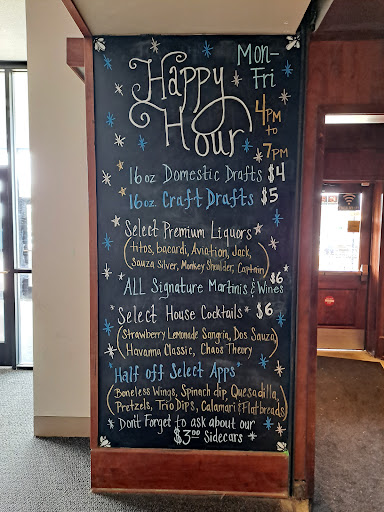 Happy Hour
Mon-
Fri
4PM
to
7PM
16 oz Domestic Drafts $4
16 oz. Craft Drafts $5
Select Premium Liquors
(titos, bacardi, Aviation, Jack,
Sauza Silver, Monkey Shoulder, Captain)
$6
ALL Signature Martinis & Wines
Select House Cocktails $6
(Strawberry Lemonade Sangria, Dos Sauza,
Havanna Classic, Chaos Theory)
Half off Select Apps
(Boneless Wings, Spinach dip, Quesadilla,
Pretzels, Trio Dips, Calamari & Flatbreads)
Don't Forget to ask about our
$3.00 Sidecars